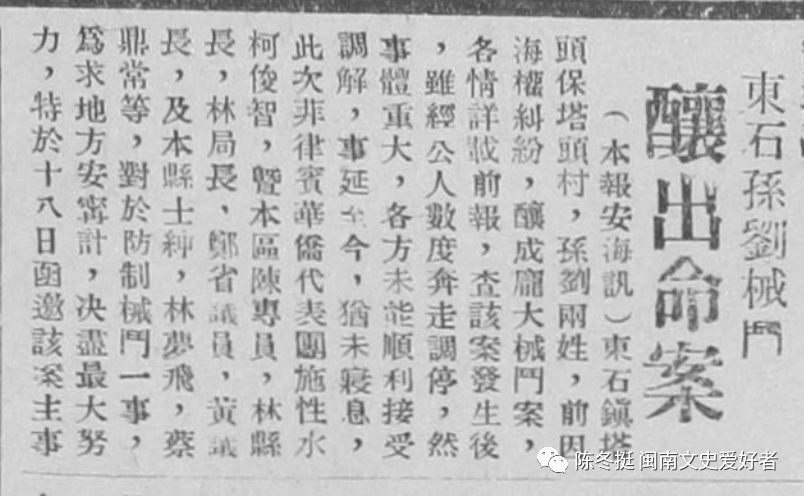 東石孫劉械鬥
釀出命案
（本報安海訊）東石鎮塔
頭保塔頭村，孫劉兩姓，前因
海權糾紛，釀成龐大械鬥案，
各情詳載前報，查該案發生後
，雖經公人數度奔走調停，然
事體重大，各方未能順利接受
調解，事延至今，猶未寢息，
此次菲律賓華僑代表團施性水
柯俊智，暨本區陳專員，林縣
長，林局長，鄭省議員，黃議
長，及本縣士紳，林夢飛，蔡
鼎常等，對於防制械鬥一事，
爲求地方安寗計，决盡最大努
力，特於十八日函邀該案主事
陈冬挺 闽南文史爱好者